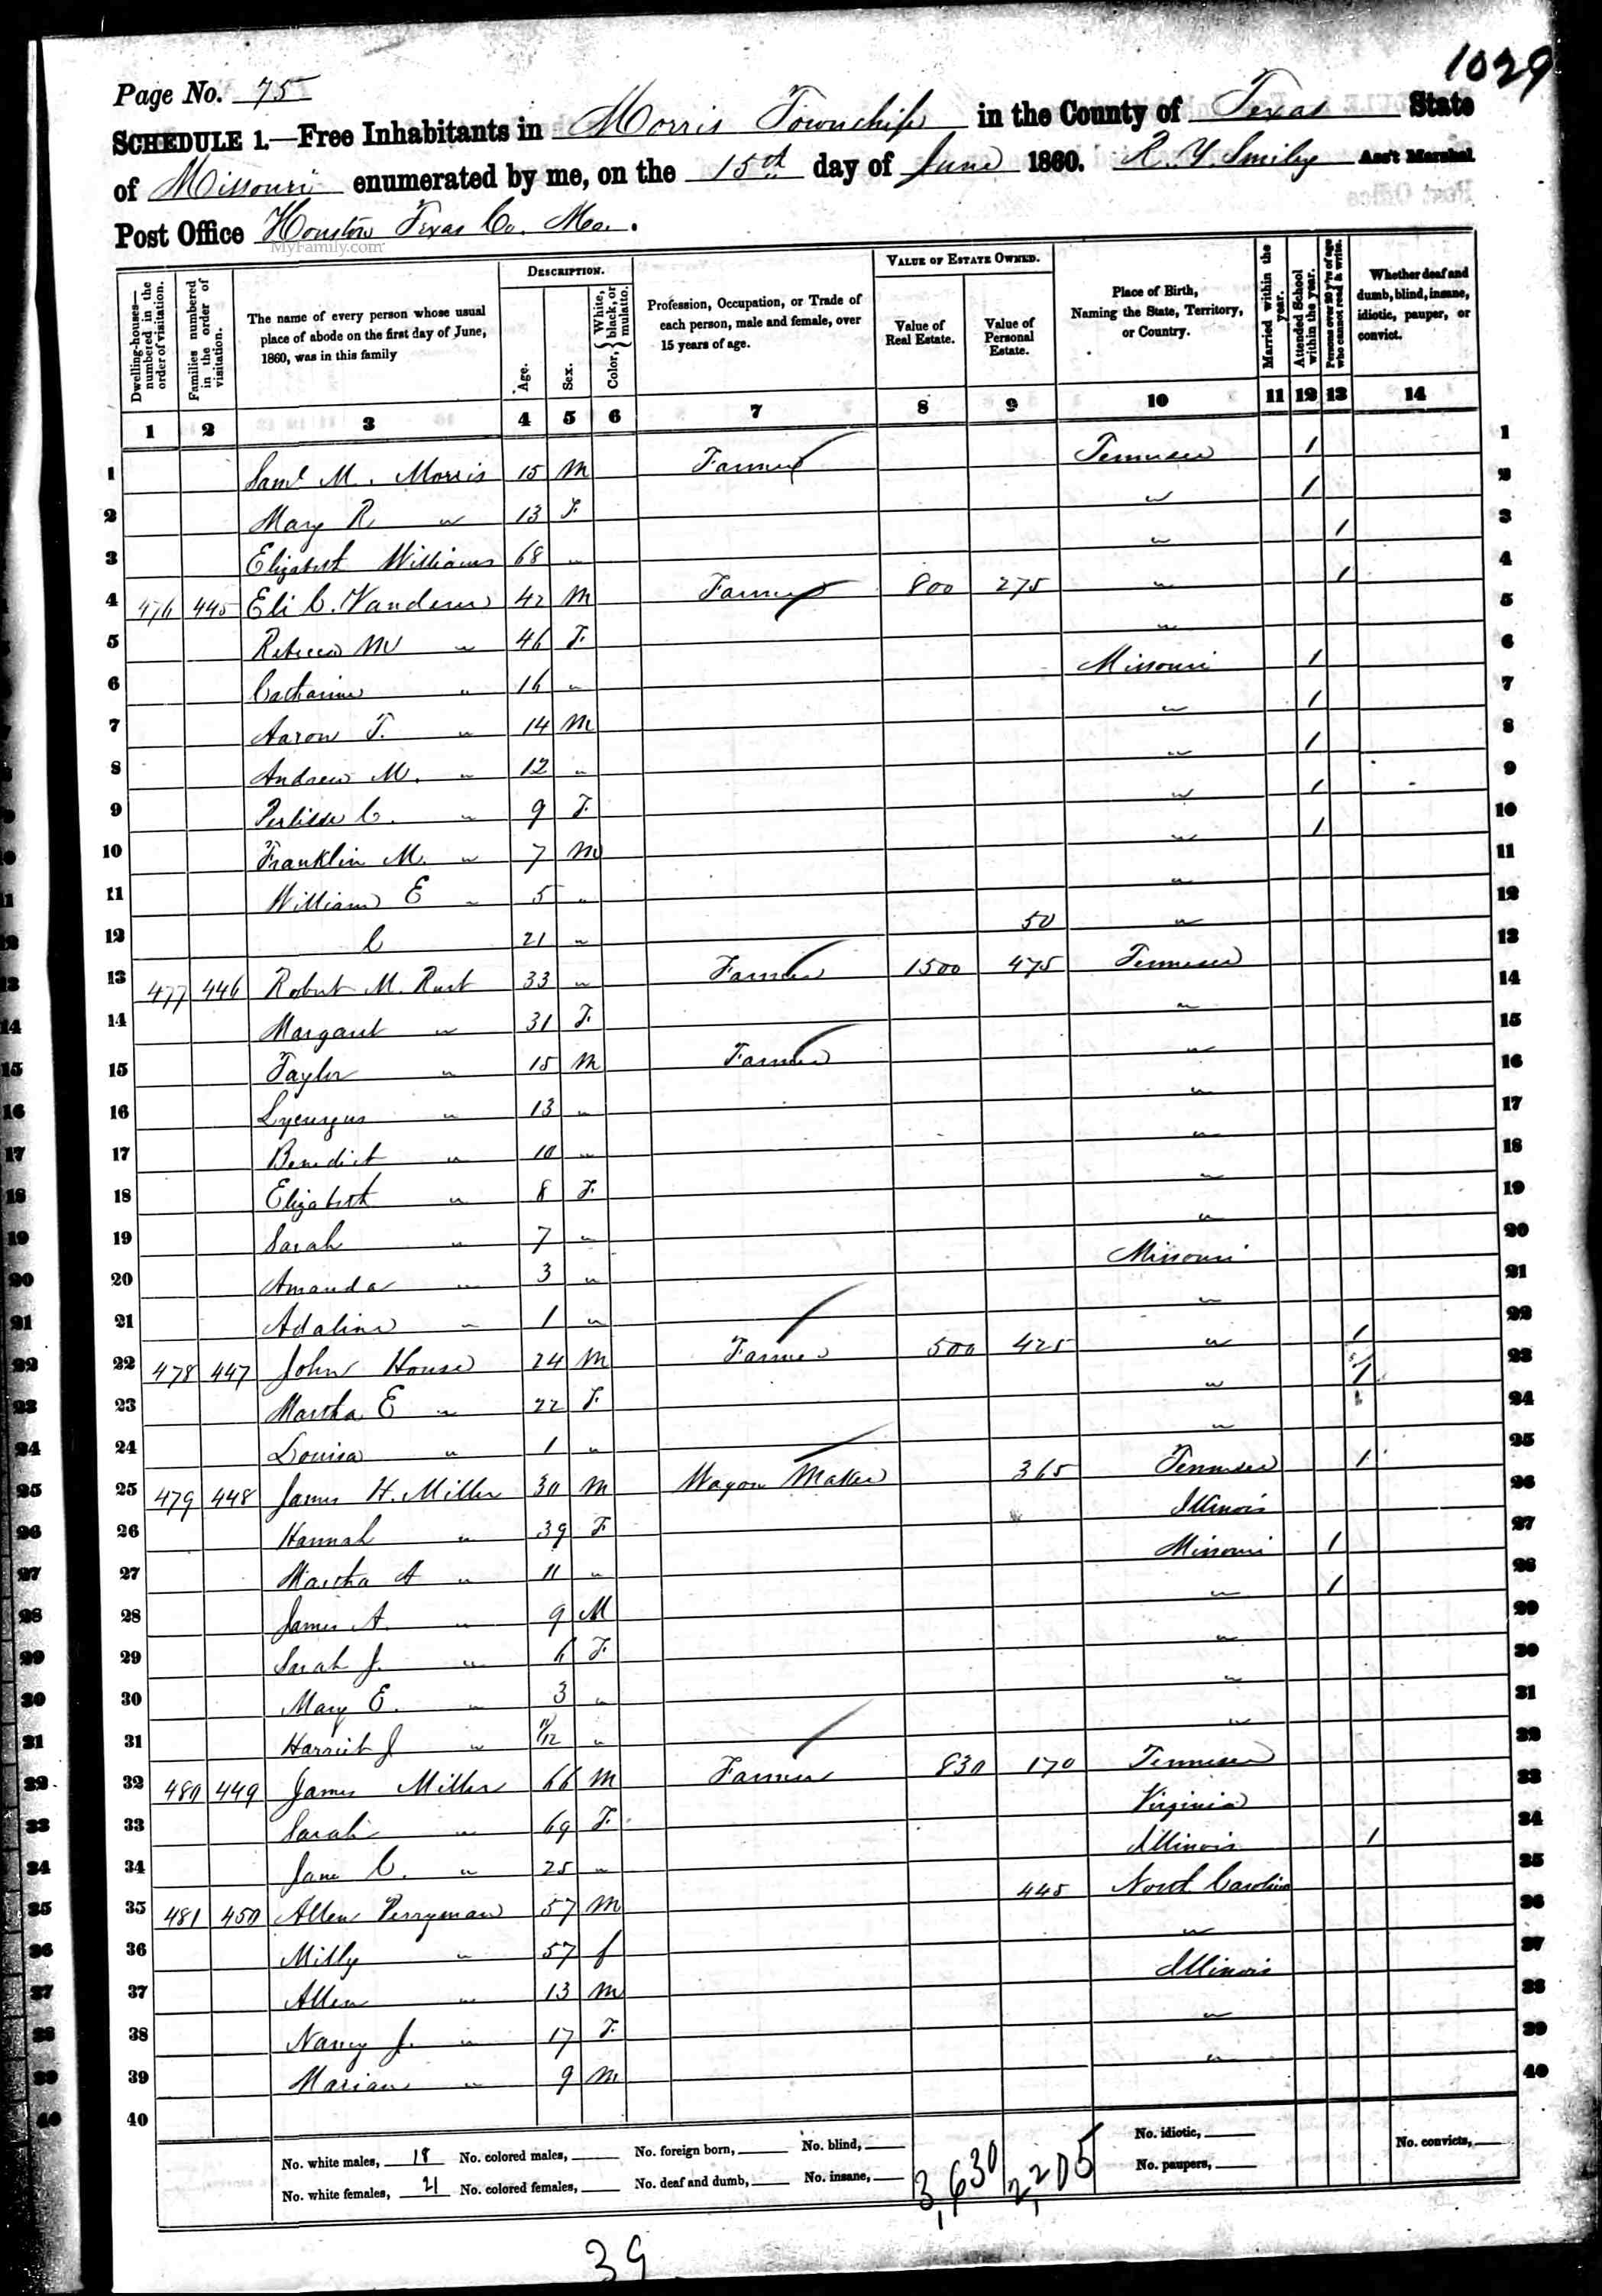 1029
Page No. 75
SCHEDULE 1.—Free Inhabitants in Morris Township in the County of Texas State
of Missouri enumerated by me, on the 15th day of June 1860. R. Y. Smiley Ass't Marshal
Post Office Houston Texas Co. Mo.
MyFamily.com
Dwelling-houses—numbered in the order of visitation.
Families numbered in the order of visitation.
The name of every person whose usual place of abode on the first day of June, 1860, was in this family
DESCRIPTION.
Age.
Sex.
Color, { White, black, or mulatto.
Profession, Occupation, or Trade of each person, male and female, over 15 years of age.
VALUE OF ESTATE OWNED.
Value of Real Estate.
Value of Personal Estate.
Place of Birth, Naming the State, Territory, or Country.
Married within the year.
Attended School within the year.
Persons over 20 y'rs of age who cannot read & write.
Whether deaf and dumb, blind, insane, idiotic, pauper, or convict.
1 2 3 4 5 6 7 8 9 10 11 12 13 14
1 Saml M. Morris 15 M Farmer Tennessee 1 1
2 Mary R " 13 F. " 1 2
3 Elizabeth Williams 68 " " 1 3
4 476 445 Eli C. Vanderer 42 M Farmer 800 275 " 1 4
5 Rebecca M " 46 F. " 5
6 Catharine " 16 " Missouri 1 6
7 Aaron T. " 14 M " 1 7
8 Andrew M. " 12 " " 1 8
9 C. " 9 F. " 1 9
10 Franklin M. " 7 M " 1 10
11 William E " 5 " " 11
12 C 21 " 50 " 12
13 477 446 Robert M. Rust 33 " Farmer 1500 475 Tennessee 13
14 Margaret " 31 F. " 14
15 Taylor " 15 M Farmer " 15
16 Lycurgus " 13 " " 16
17 Benedict " 10 " " 17
18 Elizabeth " 8 F. " 18
19 Sarah " 7 " " 19
20 Amanda " 3 " Missouri 20
21 Adaline " 1 " " 21
22 478 447 John House 24 M Farmer 500 425 " 1 22
23 Martha E " 22 F. " 1 23
24 Louisa " 1 " " 24
25 479 448 James H. Miller 30 M Wagon Maker 365 Tennessee 1 25
26 Hannah " 39 F. Illinois 26
27 Martha A " 11 " Missouri 1 27
28 James A. " 9 M " 1 28
29 Sarah J. " 6 F. " 29
30 Mary E. " 3 " " 30
31 Harriet J " 11/12 " " 31
32 480 449 James Miller 66 M Farmer 830 170 Tennessee 32
33 Sarah " 69 F. Virginia 33
34 Jane C. " 25 " Illinois 1 34
35 481 450 Allen Perryman 57 M 445 North Carolina 35
36 Milly " 57 f " 36
37 Allen " 13 M Illinois 37
38 Nancy J. " 17 F. " 38
39 Marian " 9 M " 39
40 40
No. white males, 18 No. colored males, No. foreign born, No. blind, No. idiotic, No. convicts,
No. white females, 21 No. colored females, No. deaf and dumb, No. insane, 3,630 2,205 No. paupers,
39